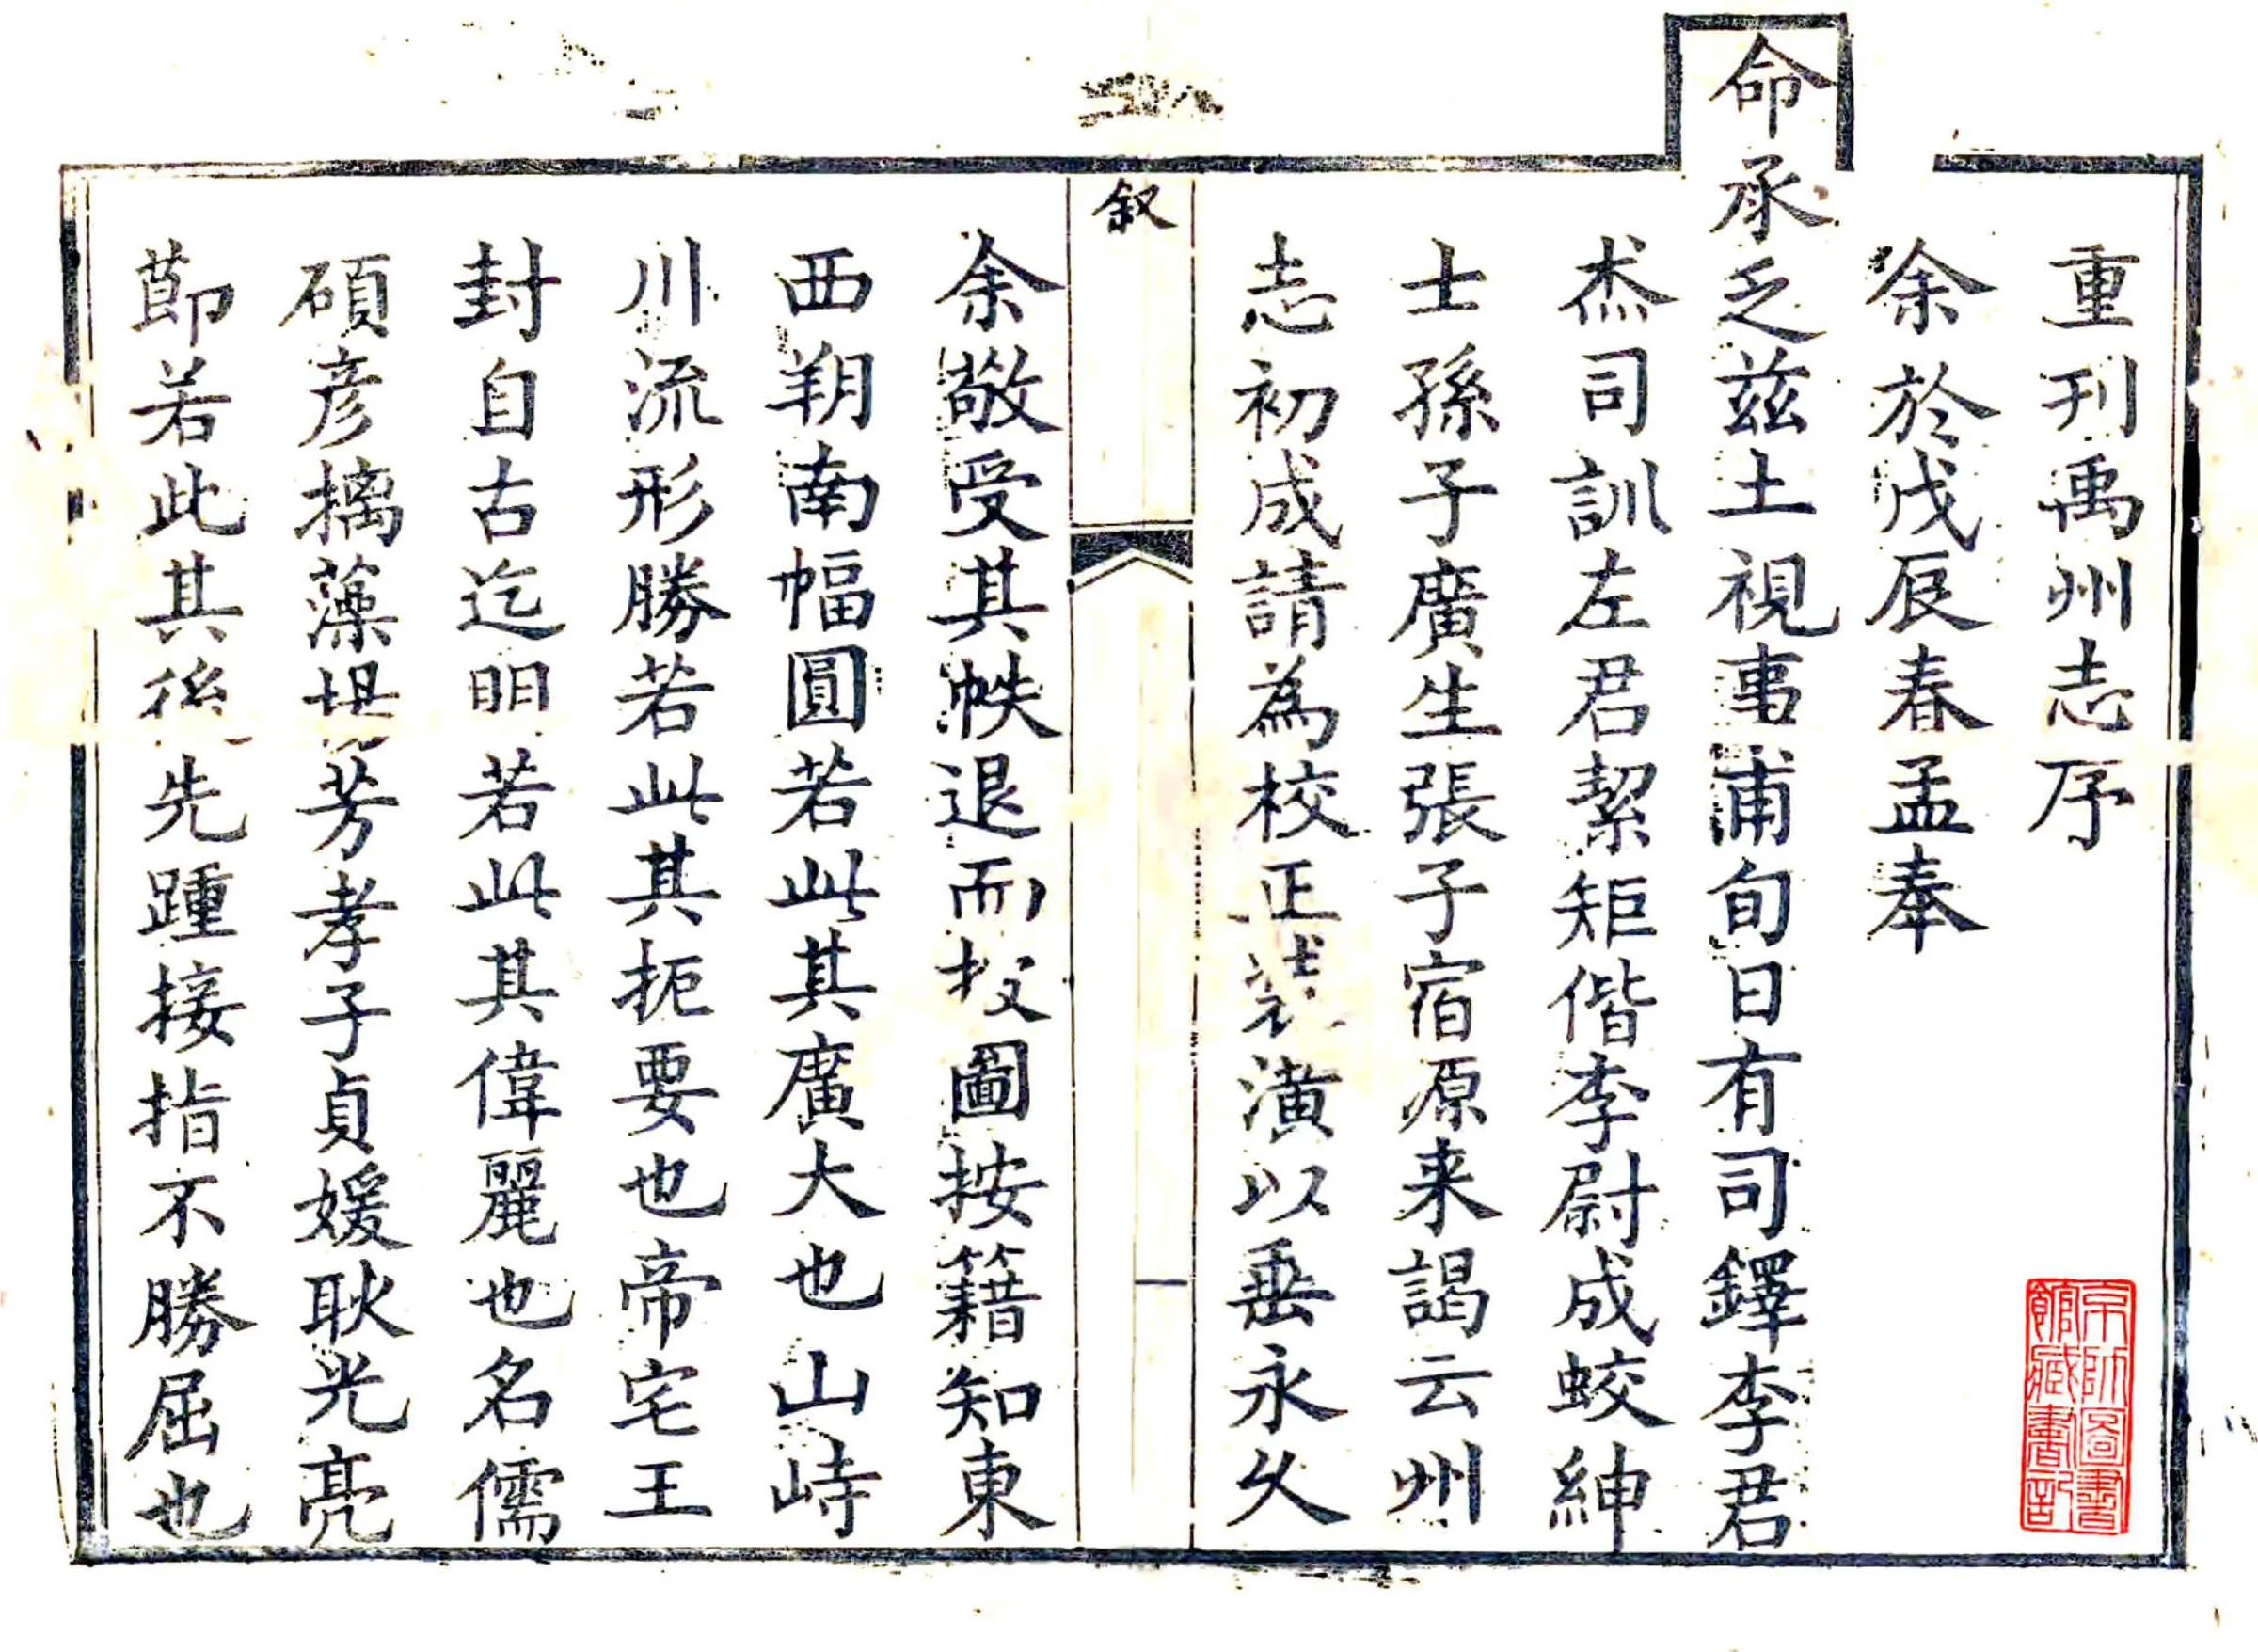 重刊禹州志序
余於戊辰春孟奉
命承乏兹土視事甫旬日有司鐸李君
杰司訓左君絜矩偕李尉成蛟紳
士孫子廣生張子宿原来謁云州
志初成請為校正裝潢以垂永久
叙
一
余敬受其帙退而按圖按籍知東
西朔南幅圓若此其廣大也山峙
川流形勝若此其扼要也帝宅王
封自古迄明若此其偉麗也名儒
碩彦摛藻掞芳孝子貞媛耿光亮
節若此其後先踵接指不勝屈也
京師圖書
館藏書記